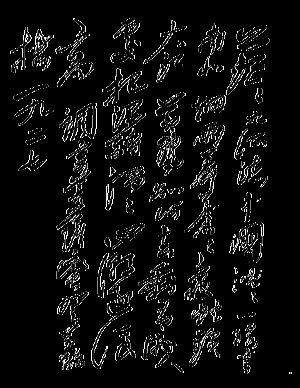 茫茫九派流中国沉沉一线穿
南北烟雨莽苍苍龟蛇锁
大江黄鹤知何去剩有游人
处把酒酹滔滔心潮逐浪
高调寄菩萨蛮登黄鹤
楼一九二七